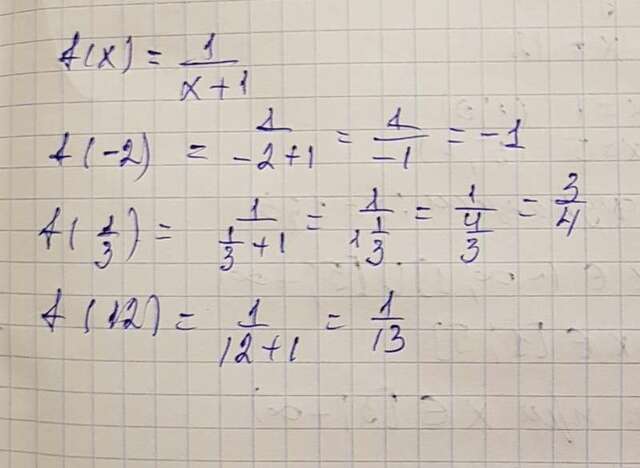 f(x) = 1/(x+1)
f(-2) = 1/(-2+1) = 1/(-1) = -1
f(1/3) = 1/(1/3+1) = 1/(1 1/3) = 1/(4/3) = 3/4
f(12) = 1/(12+1) = 1/13